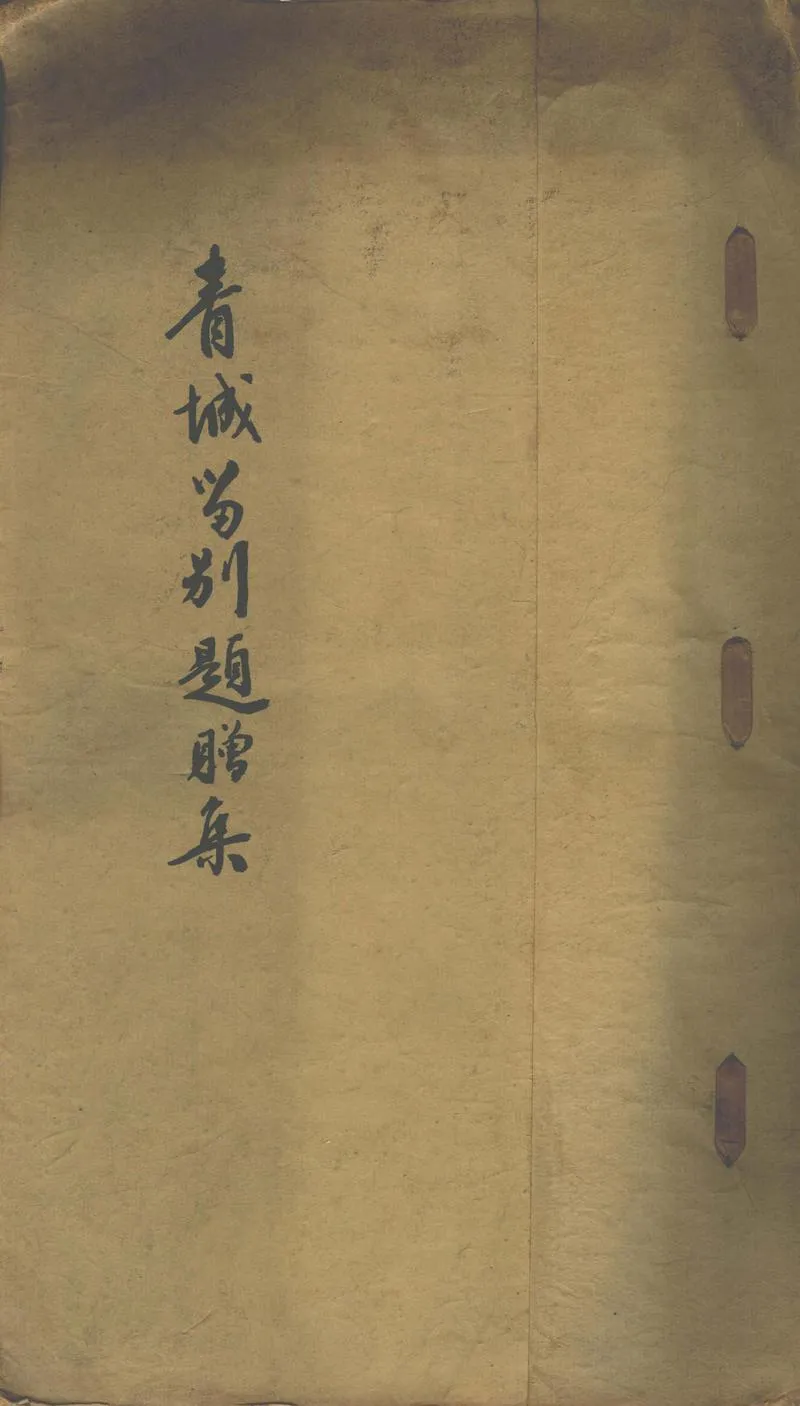 青城留别題贈集